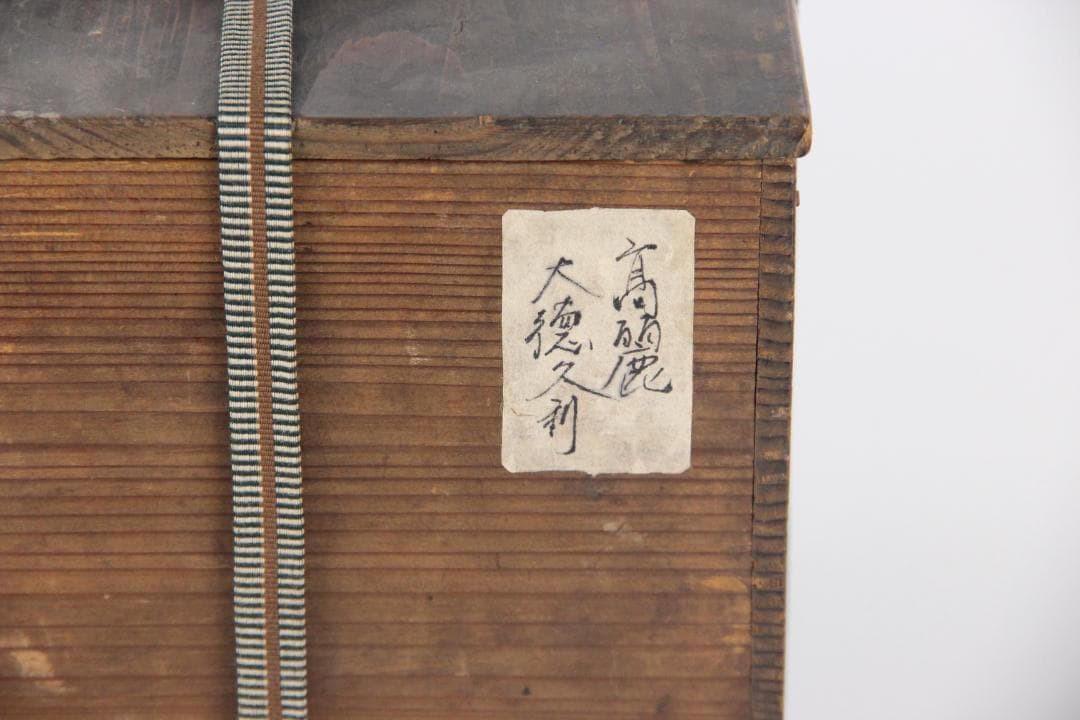 高麗
大德久利